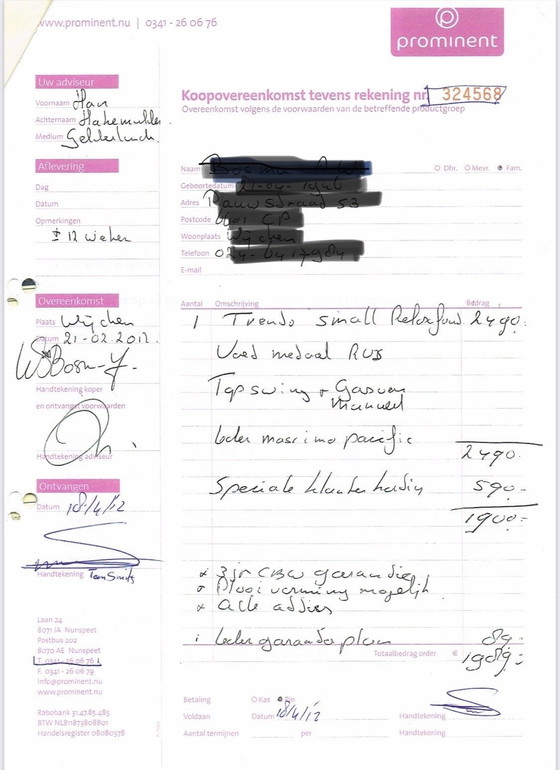 www.prominent.nu | 0341 - 26 06 76
prominent
Uw adviseur
Voornaam Han
Achternaam
Medium Gelderland.
Koopovereenkomst tevens rekening nr. 324568
Overeenkomst volgens de voorwaarden van de betreffende productgroep
Aflevering
Dag
Datum
Opmerkingen
± 12 weken
Naam
Dhr. Mevr. Fam.
Geboortedatum
Adres
Postcode
Woonplaats
Telefoon
E-mail
Overeenkomst
Plaats Wijchen
Datum 21-02-2012.
Handtekening koper
en ontvangst voorwaarden
Handtekening adviseur
Ontvangen
Datum 18/4/12
Handtekening
Aantal Omschrijving Bedrag
1 Trendo small Relaxfout. 2490.-
Voet medaal RVS
Topswing + Gasveer
Manueel
leder massimo pacific
2490.-
Speciale klanten korting 590.-
1900.-
* 3 jr CBW garantie
* Plooivorming mogelijk
* Alle advies
1 leder garantie plan 89.-
Totaalbedrag order € 1989.-
Betaling Kas Pin
Voldaan Datum 18/4/12 Handtekening
Aantal termijnen per Handtekening
Laan 24
8071 JA Nunspeet
Postbus 202
8070 AE Nunspeet
T. 0341 - 26 06 76
F. 0341 - 26 06 79
info@prominent.nu
www.prominent.nu
Rabobank 31.47.85.485
BTW NL811873808B01
Handelsregister 08080578